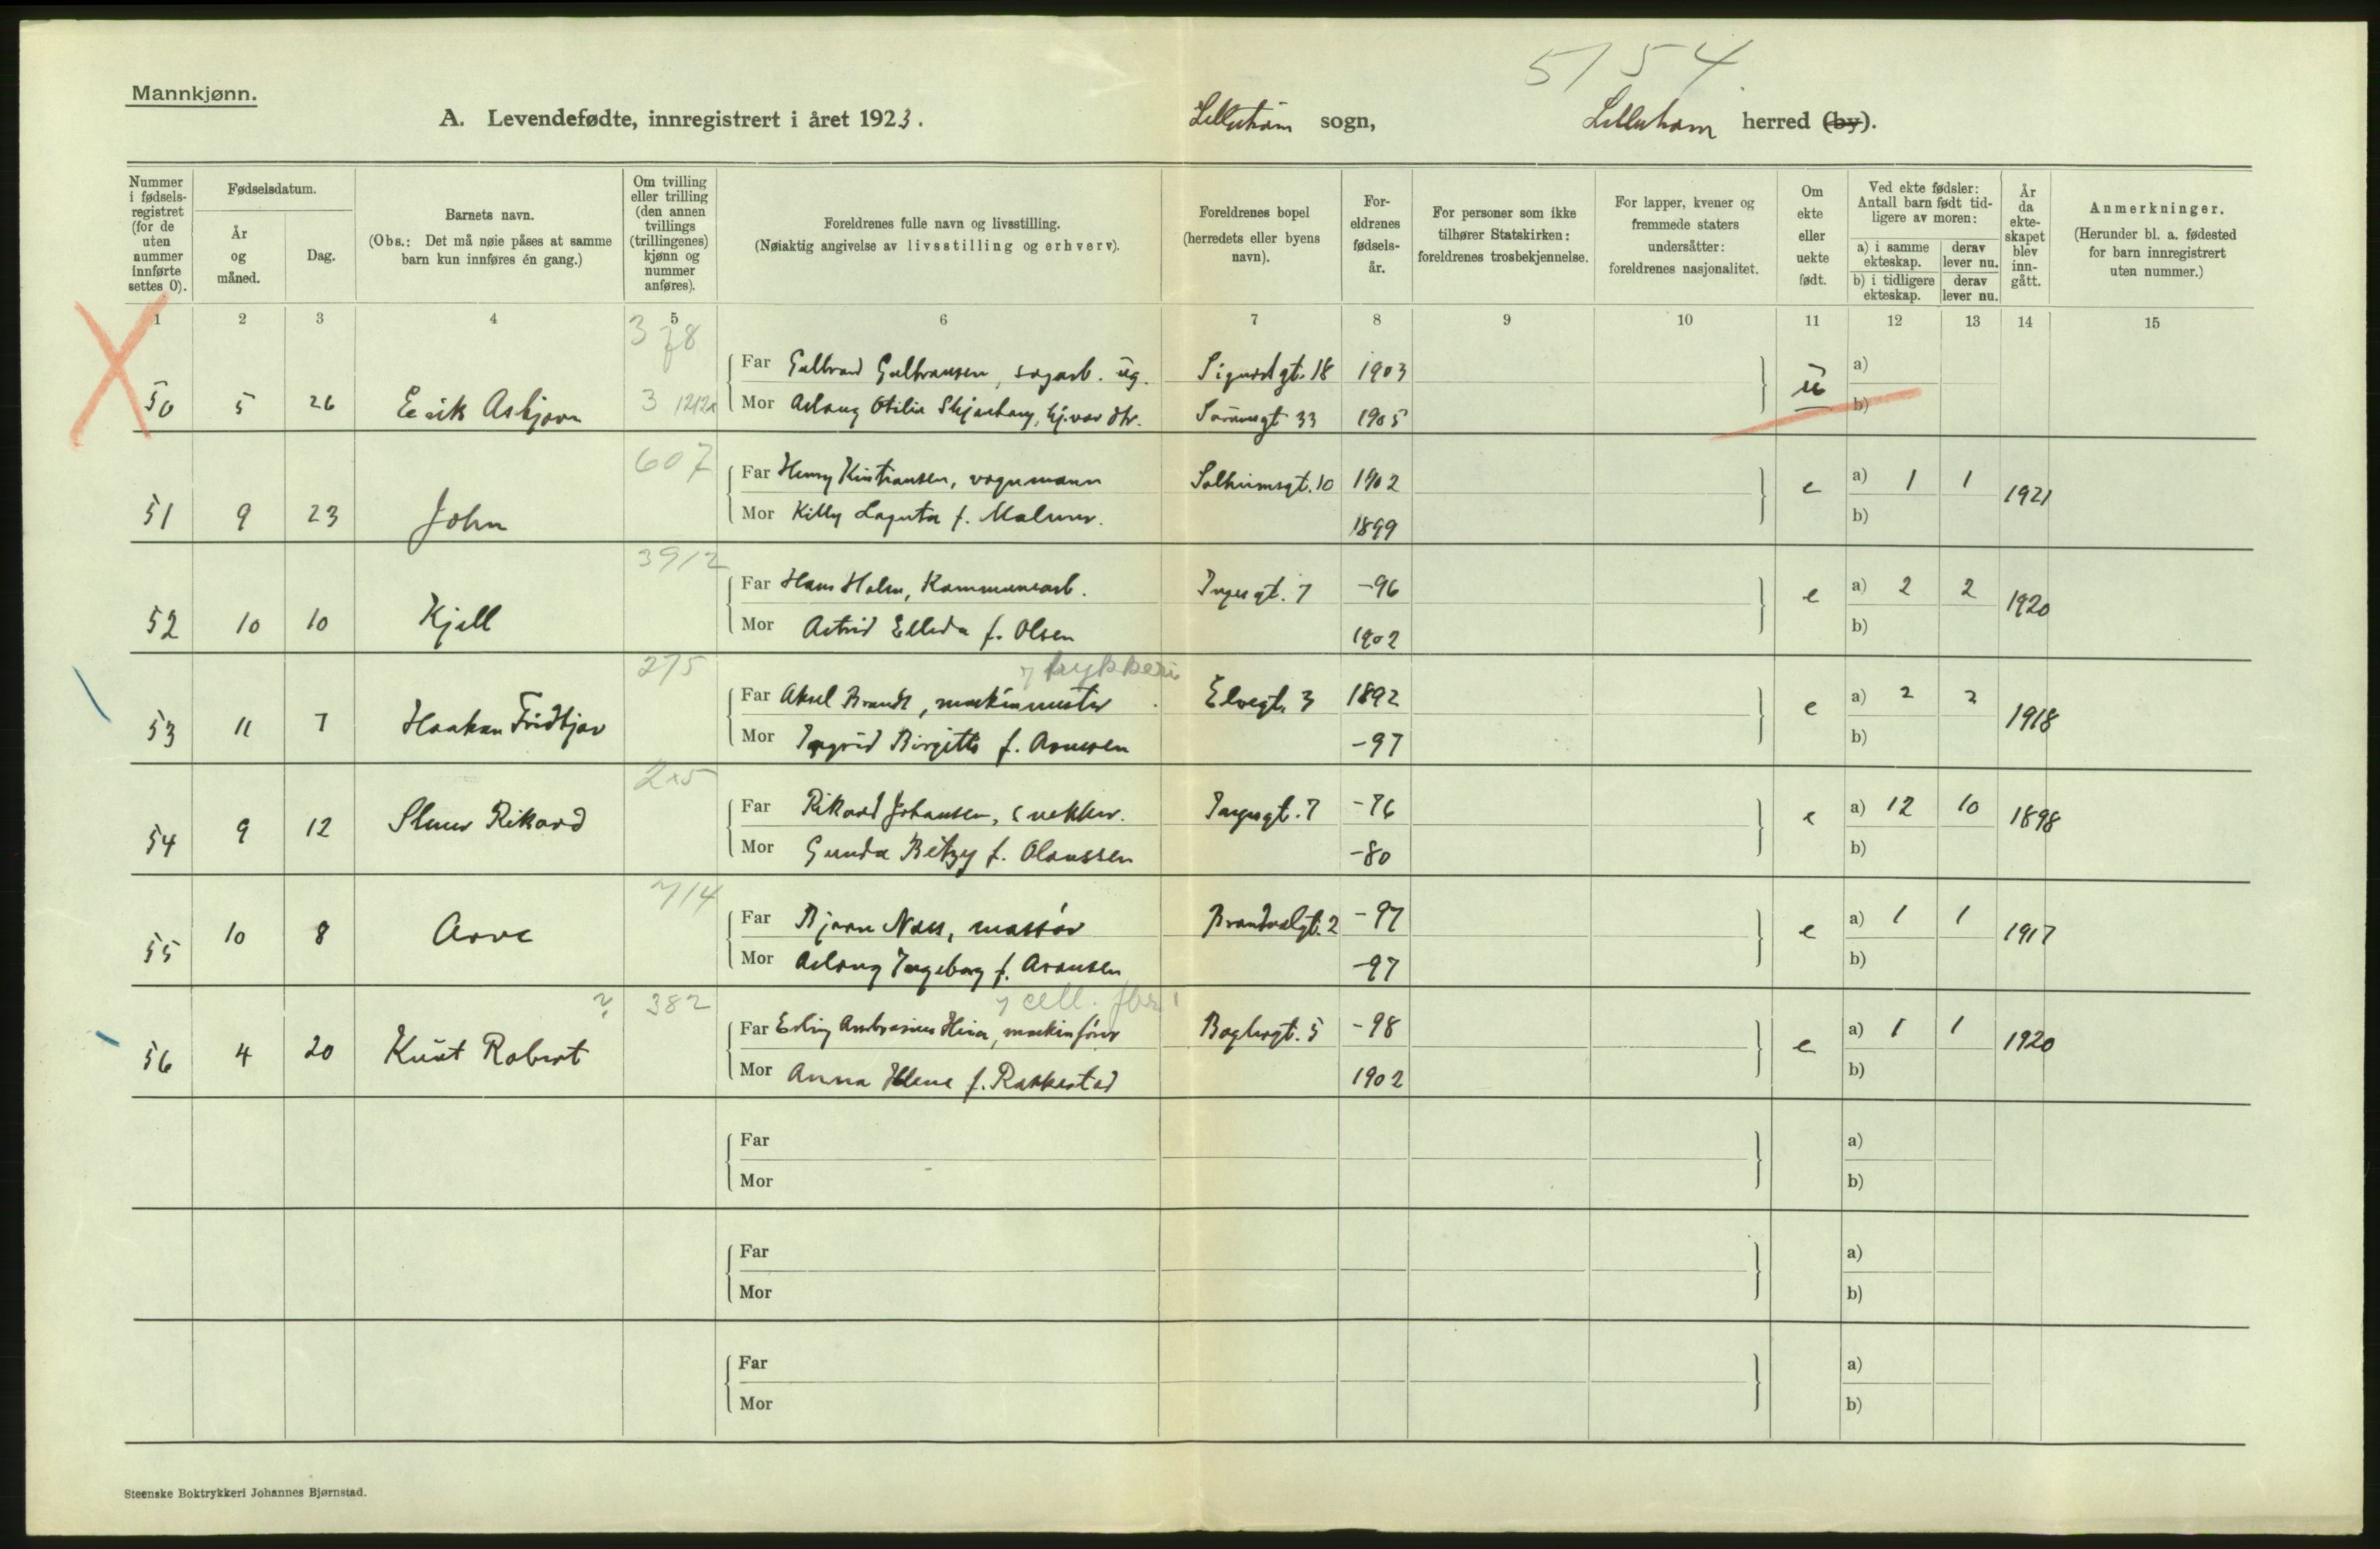 5154
Mannkjønn.
A. Levendefødte, innregistrert i året 1923. Lilleham sogn, Lilleham herred (by).
Nummer i fødsels-registret (for de uten nummer innførte settes 0).
Fødselsdatum.
År og måned.
Dag.
Barnets navn.
(Obs.: Det må nøie påses at samme barn kun innføres én gang.)
Om tvilling eller trilling (den annen tvillings (trillingenes) kjønn og nummer anføres).
Foreldrenes fulle navn og livsstilling.
(Nøiaktig angivelse av livsstilling og erhverv).
Foreldrenes bopel (herredets eller byens navn).
For-eldrenes fødsels-år.
For personer som ikke tilhører Statskirken: foreldrenes trosbekjennelse.
For lapper, kvener og fremmede staters undersåtter: foreldrenes nasjonalitet.
Om ekte eller uekte født.
Ved ekte fødsler: Antall barn født tid-ligere av moren:
a) i samme ekteskap.
derav lever nu.
b) i tidligere ekteskap.
derav lever nu.
År da ekte-skapet blev inn-gått.
Anmerkninger.
(Herunder bl. a. fødested for barn innregistrert uten nummer.)
1 2 3 4 5 6 7 8 9 10 11 12 13 14 15
378
Far Gulbrand Gulbransen, sagarb. ug. Sigurdgt. 18 1903 a)
50 5 26 Erik Asbjørn 3 Mor Aslaug Otilie 33 1905 u b)
607
Far Henry Kristiansen, vognmann Solheimsgt. 10 1902 e a) 1 1 1921
51 9 23 John Mor Killy f. 1899 b)
3912
Far Hans Holm, Kommunearb. Ingergt. 7 -96 e a) 2 2 1920
52 10 10 Kjell Mor Astrid Elleda f. Olsen 1902 b)
275 trykkeri
Far Aksel Brandt, maskinmester Elvegt. 3 1892 e a) 2 2 1918
53 11 7 Haakon Fridtjov Mor Ingrid Birgitte f. Arnesen -97 b)
Far Rikard Johansen, snekker. Ingersgt. 7 -76 e a) 12 10 1898
54 9 12 Rikard Mor Gunda Betzy f. Olaussen -80 b)
714
Far Bjarne Næss, massør Brandvalgt. 2 -97 e a) 1 1 1917
55 10 8 Arve Mor Aslaug Ingeborg f. Aronsen -97 b)
? 382 cell. fbr.
Far Erling Ambrosius, maskinfører Boglergt. 5 -98 e a) 1 1 1920
56 4 20 Knut Robert Mor Anna Helene f. Rakkestad 1902 b)
Far a)
Mor b)
Far a)
Mor b)
Far a)
Mor b)
Steenske Boktrykkeri Johannes Bjørnstad.